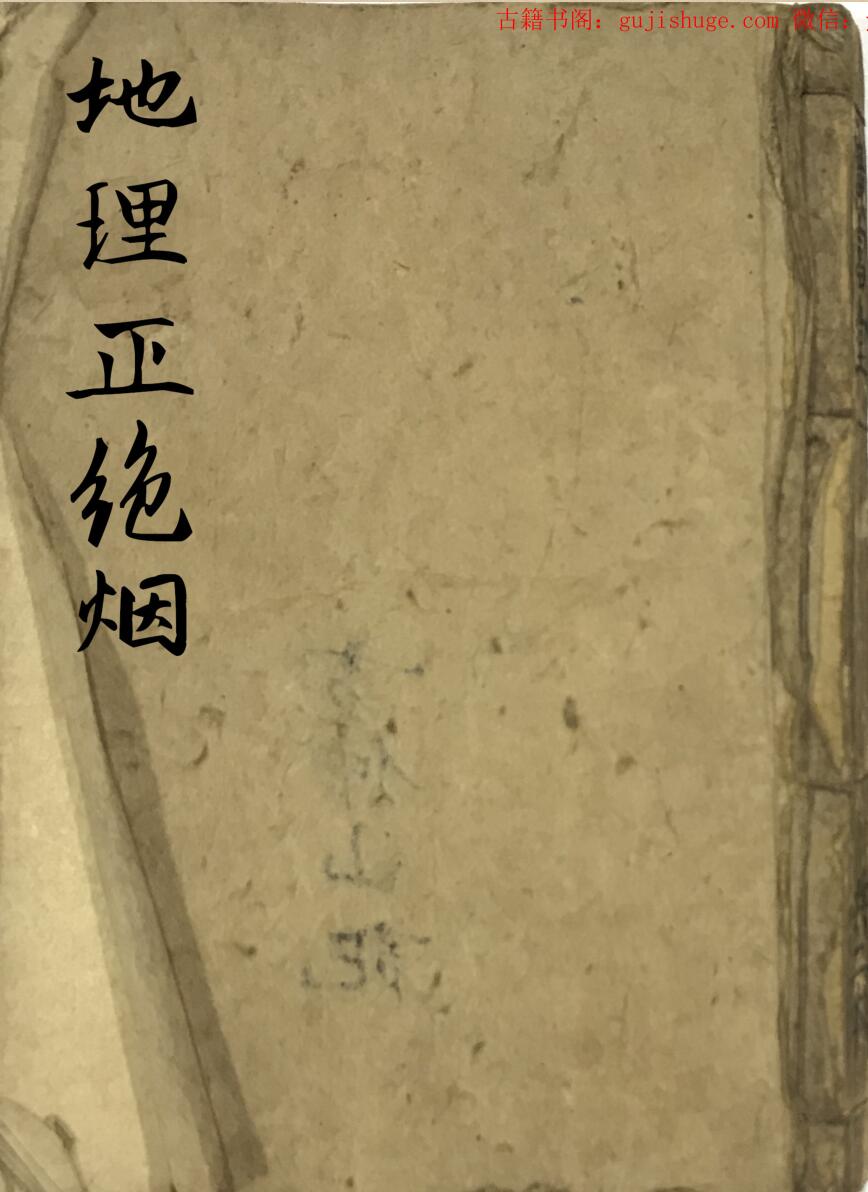 古籍书阁：gujishuge.com 微信：
地理正绝烟